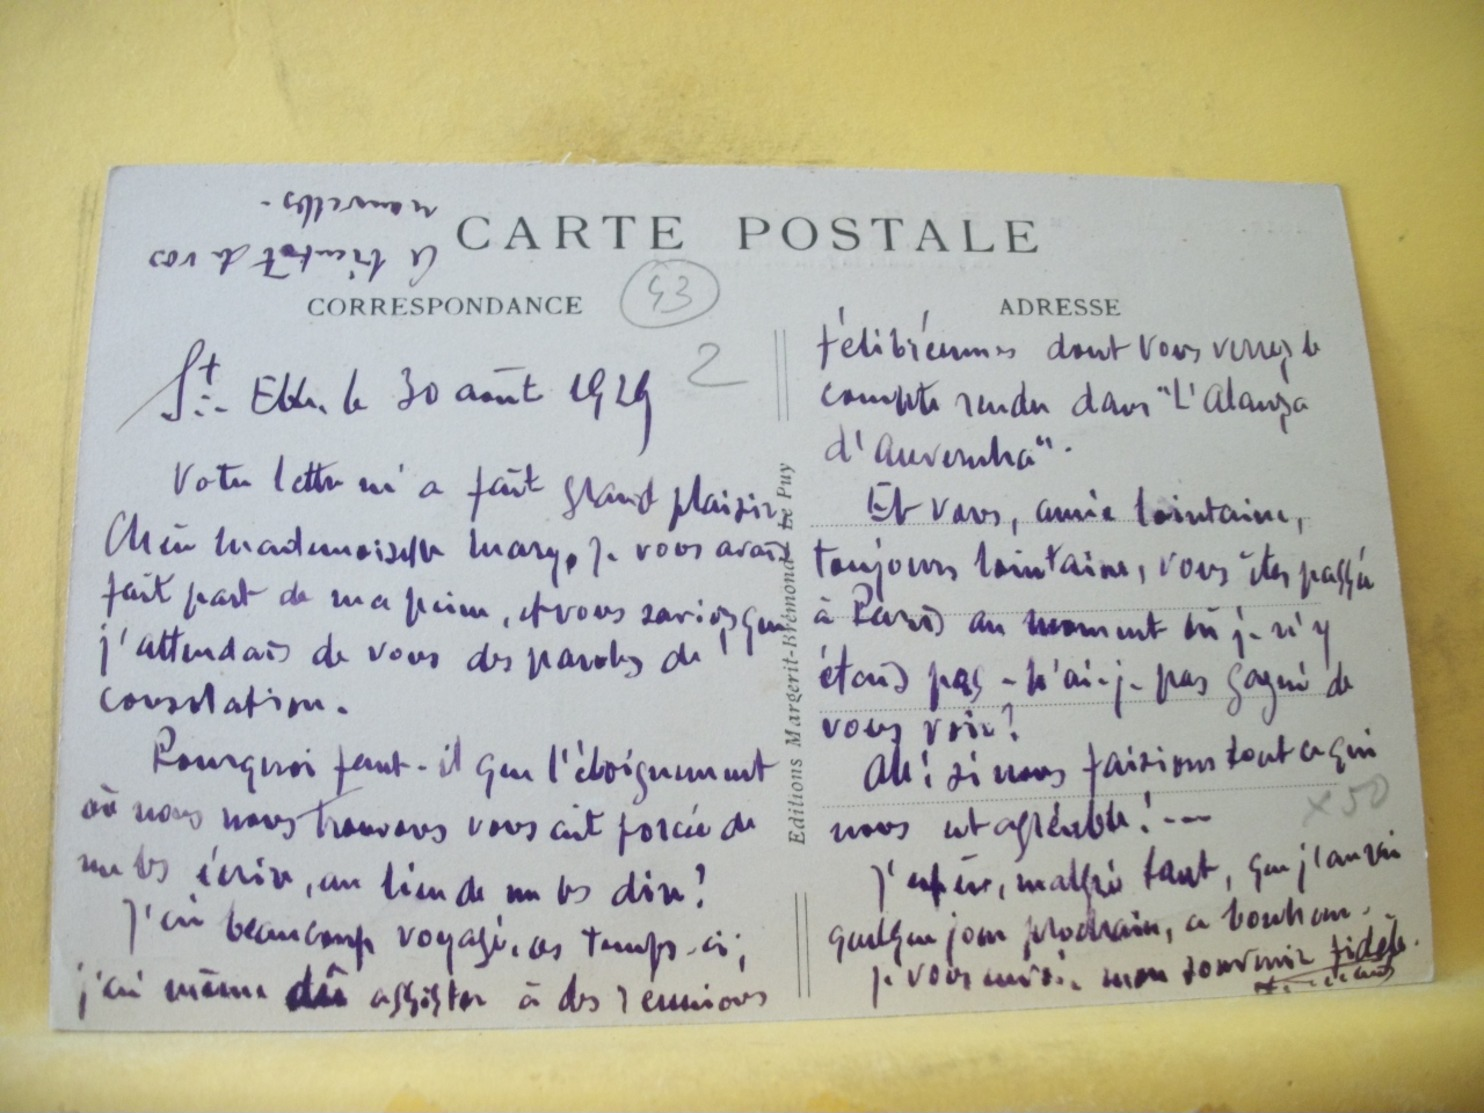 CARTE POSTALE
CORRESPONDANCE
43
2
St. Ette. le 30 août 1929
Votre lettre m'a fait grand plaisir,
Chère Mademoiselle Mary, je vous avais
fait part de ma peine, et vous saviez que
j'attendais de vous des paroles de
consolation.
Pourquoi faut-il que l'éloignement
où nous nous trouvons vous ait forcée de
me les écrire, au lieu de me les dire?
J'ai beaucoup voyagé, ces temps-ci;
j'ai même dû assister à des réunions
Editions Margerit-Brémond Le Puy
ADRESSE
félibréennes dont vous verrez le
compte rendu dans "L'Alauza
d'Auvernha".
Et vous, amie lointaine,
toujours lointaine, vous êtes passée
à Paris au moment où je n'y
étais pas - n'ai-je pas gagné de
vous voir?
Ah! si nous faisions tout ce qui
nous est agréable! ---
x50
J'espère, malgré tout, que j'aurai
quelque jour prochain, ce bonheur.
Je vous envoie mon souvenir fidèle.
à bientôt de vos
nouvelles.